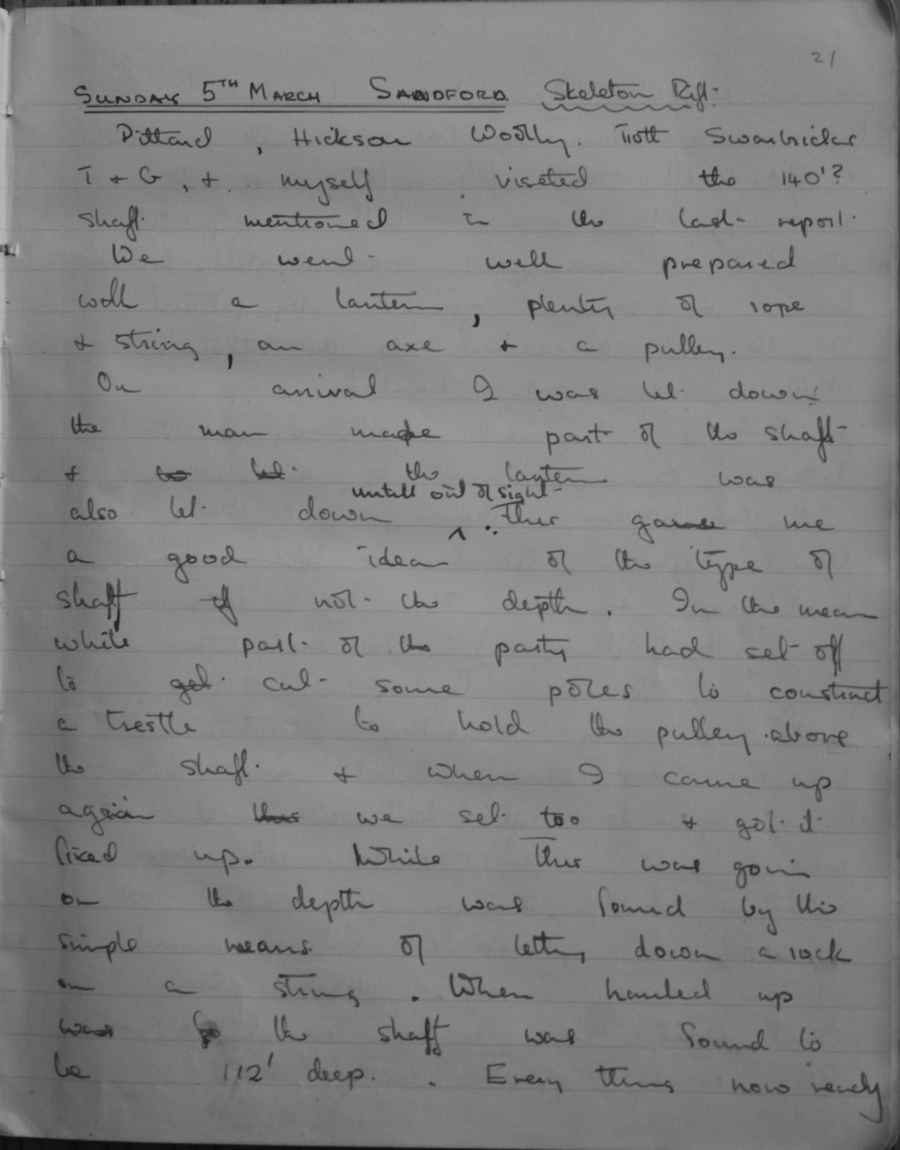 21
SUNDAY 5TH MARCH SANDFORD Skeleton Rift:
Pittard, Hickson Woolly. Trott Swanbricker
T + G, +. myself viseted the 140'?
shaft mentioned in the last report.
We went well prepared
with a lantern, plenty of rope
+ string, an axe + a pulley.
On arrival I was let down
the man made part of the shaft
+ to let the lantern was
untill out of sight
also let down ^. This gave me
a good idea of the type of
shaft if not the depth. In the mean
while part of the party had set off
to get cut some poles to construct
a trestle to hold the pulley above
the shaft + when I came up
again we set too + got it
fixed up. While This was goin
on the depth was found by the
simple means of letting down a rock
on a string. When hauled up
was the shaft was found to
be 112' deep. . Every thing now ready